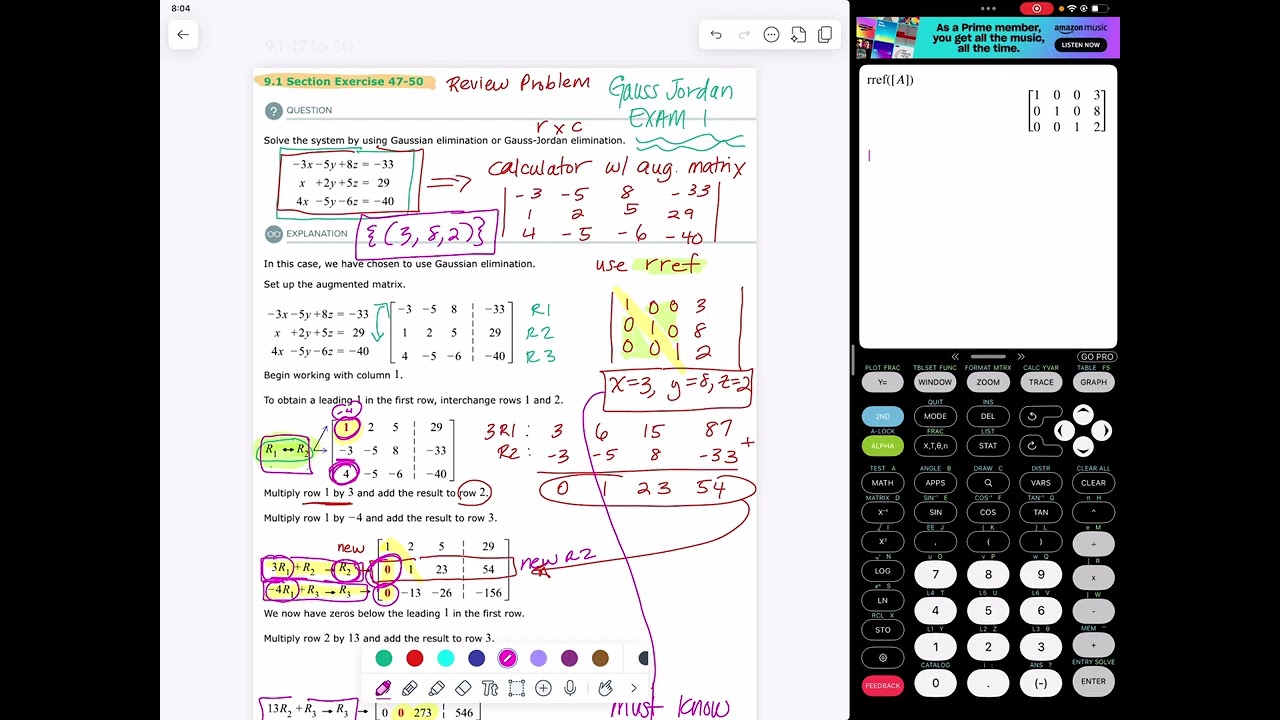 8:04
9.1 47 to 50
9.1 Section Exercise 47-50 Review Problem
Gauss Jordan
EXAM 1
? QUESTION
r x c
Solve the system by using Gaussian elimination or Gauss-Jordan elimination.
calculator w/ aug. matrix
−3x −5y +8z = −33
x +2y +5z = 29
4x −5y −6z = −40
-3 -5 8 -33
1 2 5 29
4 -5 -6 -40
{(3, 8, 2)}
EXPLANATION
use rref
In this case, we have chosen to use Gaussian elimination.
Set up the augmented matrix.
−3x −5y +8z = −33 −3 −5 8 −33 R1
x +2y +5z = 29 1 2 5 29 R2
4x −5y −6z = −40 4 −5 −6 −40 R3
1 0 0 3
0 1 0 8
0 0 1 2
x=3, y=8, z=2
Begin working with column 1.
To obtain a leading 1 in the first row, interchange rows 1 and 2.
-4
1 2 5 29
R1 ↔ R2 −3 −5 8 −33
4 −5 −6 −40
3R1 : 3 6 15 87
R2 : -3 -5 8 -33 +
0 1 23 54
Multiply row 1 by 3 and add the result to row 2.
Multiply row 1 by −4 and add the result to row 3.
new 1 2 5 29
3R1 + R2 → R2 0 1 23 54 new R2
−4R1 + R3 → R3 0 −13 −26 −156
We now have zeros below the leading 1 in the first row.
Multiply row 2 by 13 and add the result to row 3.
Tt
13R2 + R3 → R3 0 0 273 546
must know
As a Prime member,
you get all the music,
all the time.
amazon music
LISTEN NOW
rref([A])
1 0 0 3
0 1 0 8
0 0 1 2
GO PRO
PLOT FRAC TBLSET FUNC FORMAT MTRX CALC YVAR TABLE F5
Y= WINDOW ZOOM TRACE GRAPH
QUIT INS
2ND MODE DEL
A-LOCK FRAC LIST
ALPHA X,T,θ,n STAT
TEST A ANGLE B DRAW C DISTR CLEAR ALL
MATH APPS VARS CLEAR
MATRIX D SIN⁻¹ E COS⁻¹ F TAN⁻¹ G π H
X⁻¹ SIN COS TAN ^
√ I EE J { K } L e M
X² , ( ) ÷
u O v P w Q [ R
LOG 7 8 9 x
L4 T L5 U L6 V ] W
LN 4 5 6 -
RCL X L1 Y L2 Z L3 θ MEM "
STO 1 2 3 +
CATALOG i : ANS ? ENTRY SOLVE
FEEDBACK 0 . (-) ENTER